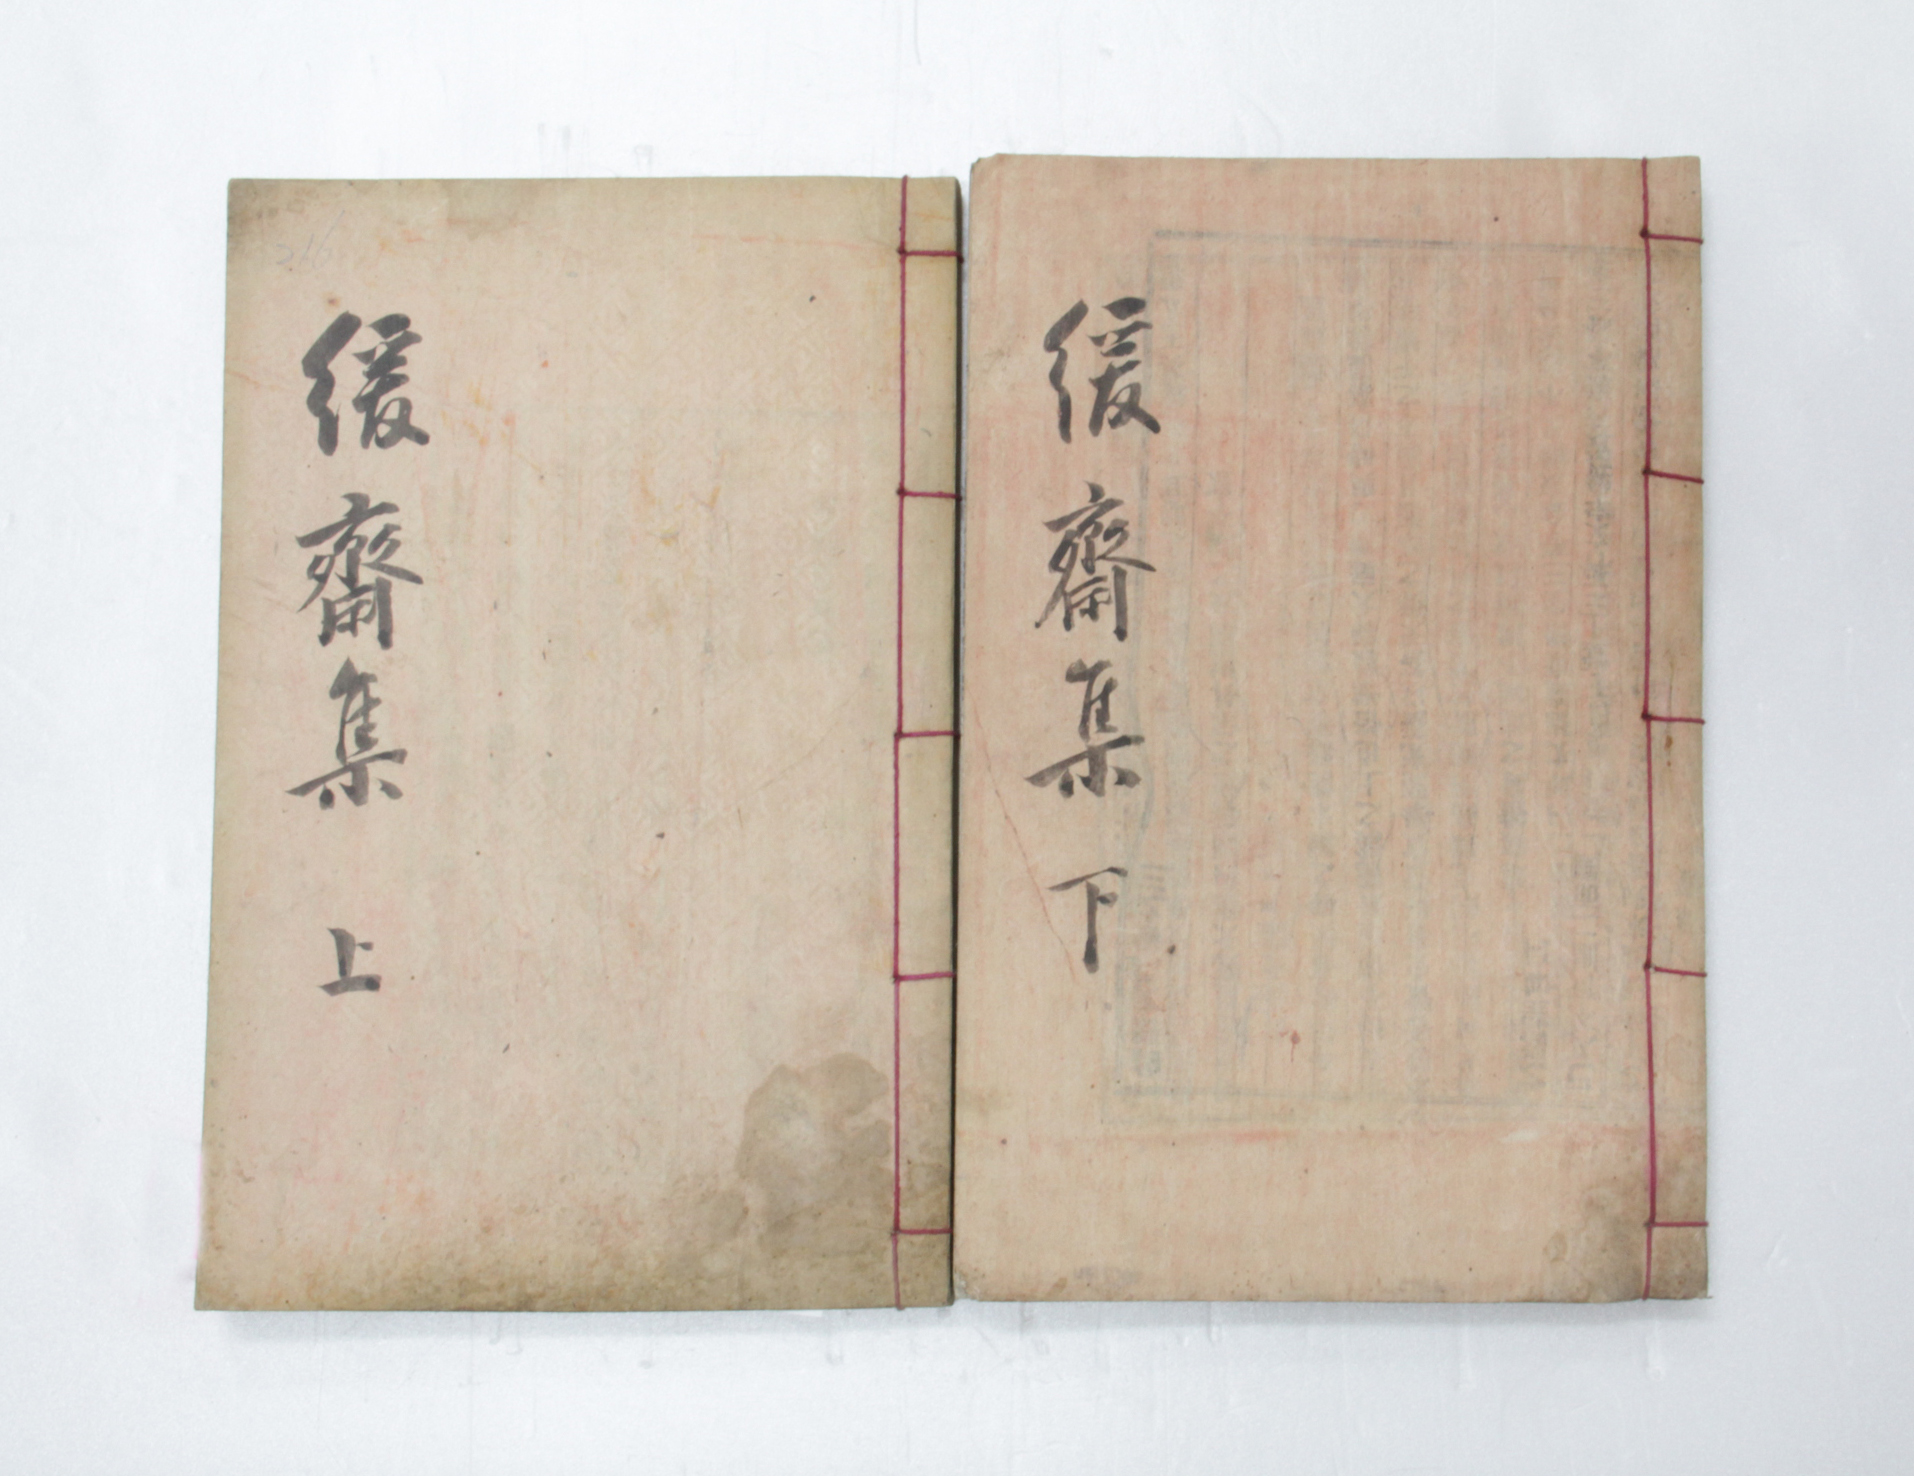 緩齋集 上
緩齋集 下